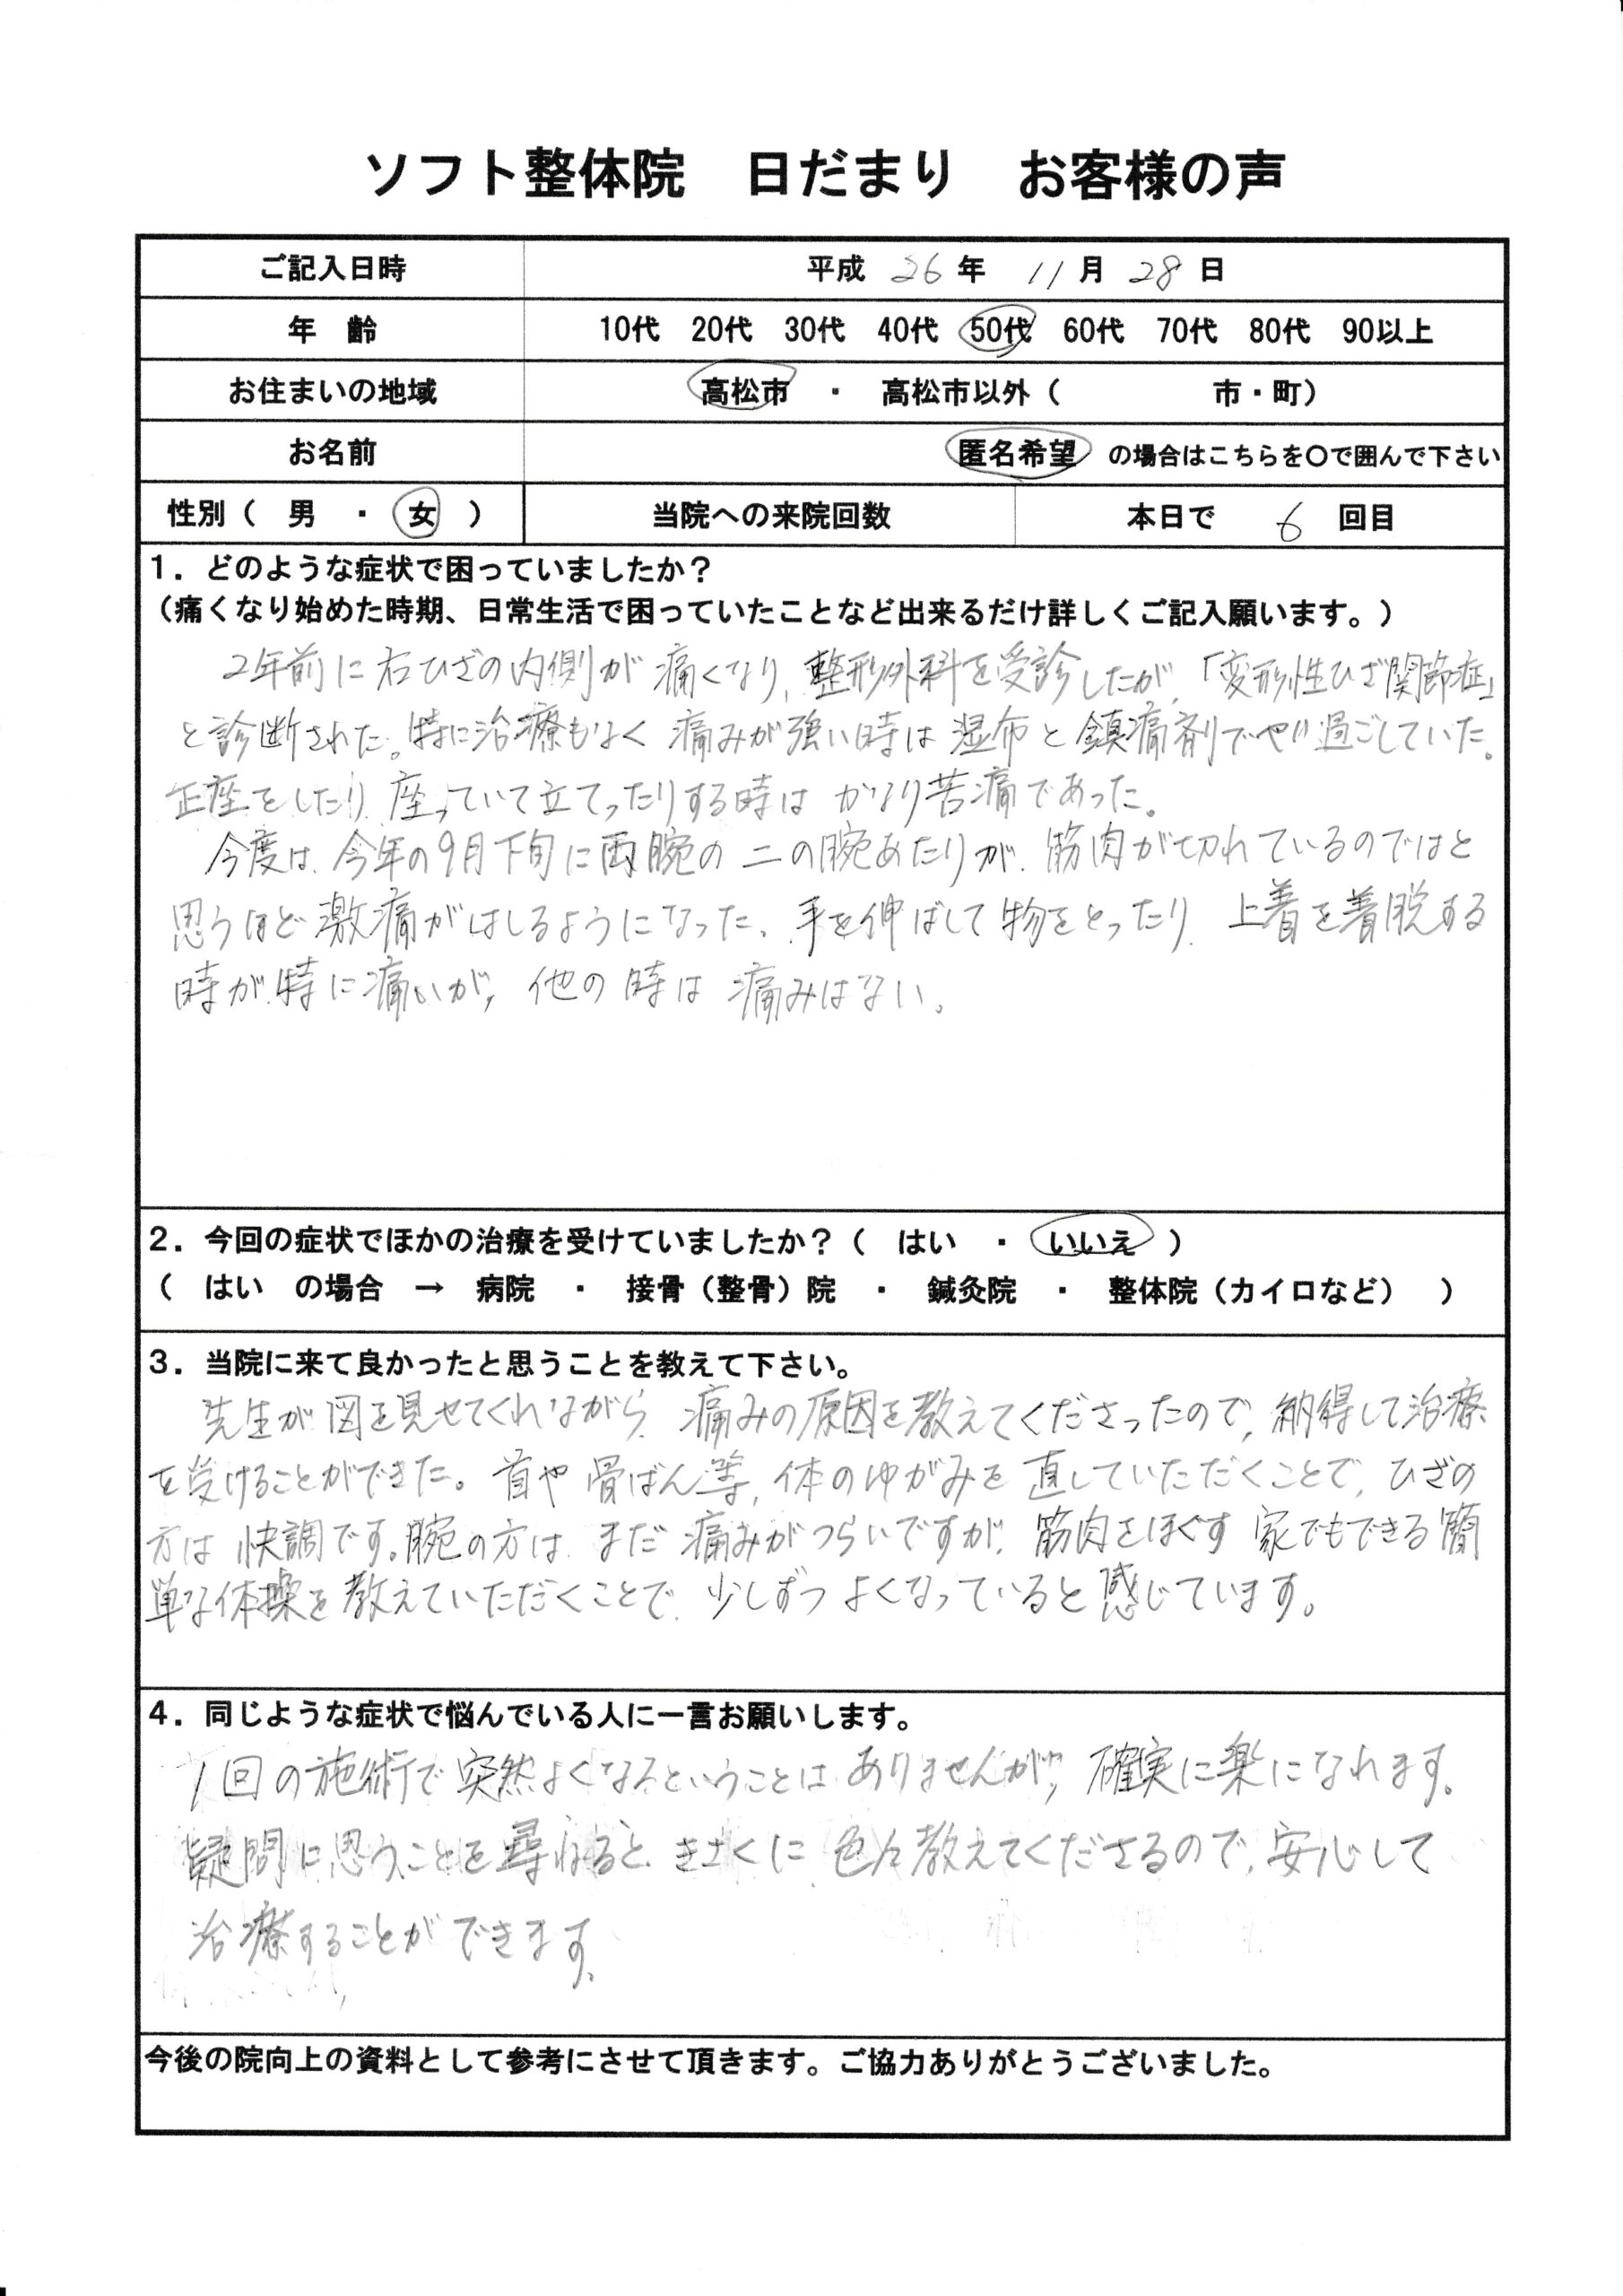 ソフト整体院　日だまり　お客様の声
ご記入日時　平成 26 年 11 月 28 日
年　齢　10代　20代　30代　40代　50代　60代　70代　80代　90以上
お住まいの地域　高松市　・　高松市以外（　　　　　市・町）
お名前　匿名希望　の場合はこちらを〇で囲んで下さい
性別（　男　・　女　）　当院への来院回数　本日で　6　回目
1．どのような症状で困っていましたか？
（痛くなり始めた時期、日常生活で困っていたことなど出来るだけ詳しくご記入願います。）
2年前に右ひざの内側が痛くなり、整形外科を受診したが、「変形性ひざ関節症」
と診断された。特に治療もなく痛みが強い時は湿布と鎮痛剤で過ごしていた。
正座をしたり、座っていて立てったりする時は かなり苦痛であった。
今度は、今年の9月下旬に両腕の二の腕あたりが、筋肉が切れているのではと
思うほど激痛がはしるようになった、手を伸ばして物をとったり、上着を着脱する
時が特に痛いが、他の時は痛みはない。
2．今回の症状でほかの治療を受けていましたか？（　はい　・　いいえ　）
（　はい　の場合　→　病院　・　接骨（整骨）院　・　鍼灸院　・　整体院（カイロなど）　）
3．当院に来て良かったと思うことを教えて下さい。
先生が図を見せてくれながら、痛みの原因を教えてくださったので、納得して治療
を受けることができた。首や骨ばん等、体のゆがみを直していただくことで、ひざの
方は快調です。腕の方は、まだ痛みがつらいですが、筋肉をほぐす家でもできる簡
単な体操を教えていただくことで、少しずつよくなっていると感じています。
4．同じような症状で悩んでいる人に一言お願いします。
1回の施術で突然よくなるということはありませんが、確実に楽になれます。
疑問に思うことを尋ねると、きさくに色々教えてくださるので、安心して
治療することができます。
今後の院向上の資料として参考にさせて頂きます。ご協力ありがとうございました。